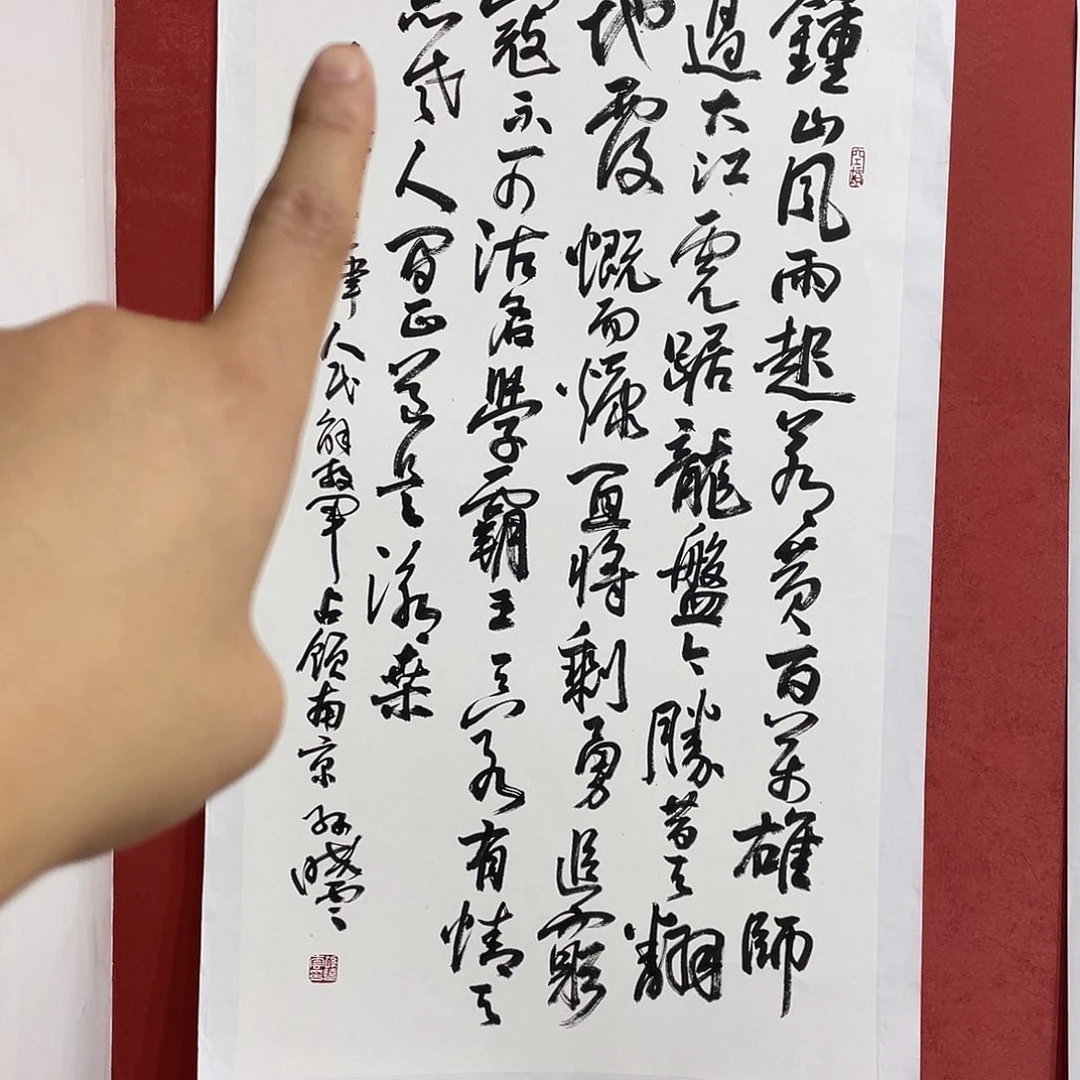 鍾山風雨起蒼黃百萬雄師
過大江虎踞龍盤今勝昔天翻
地覆慨而慷宜將剩勇追窮
寇不可沽名學霸王天若有情天
亦老人間正道是滄桑
律人民解放軍占領南京 孫曉雲